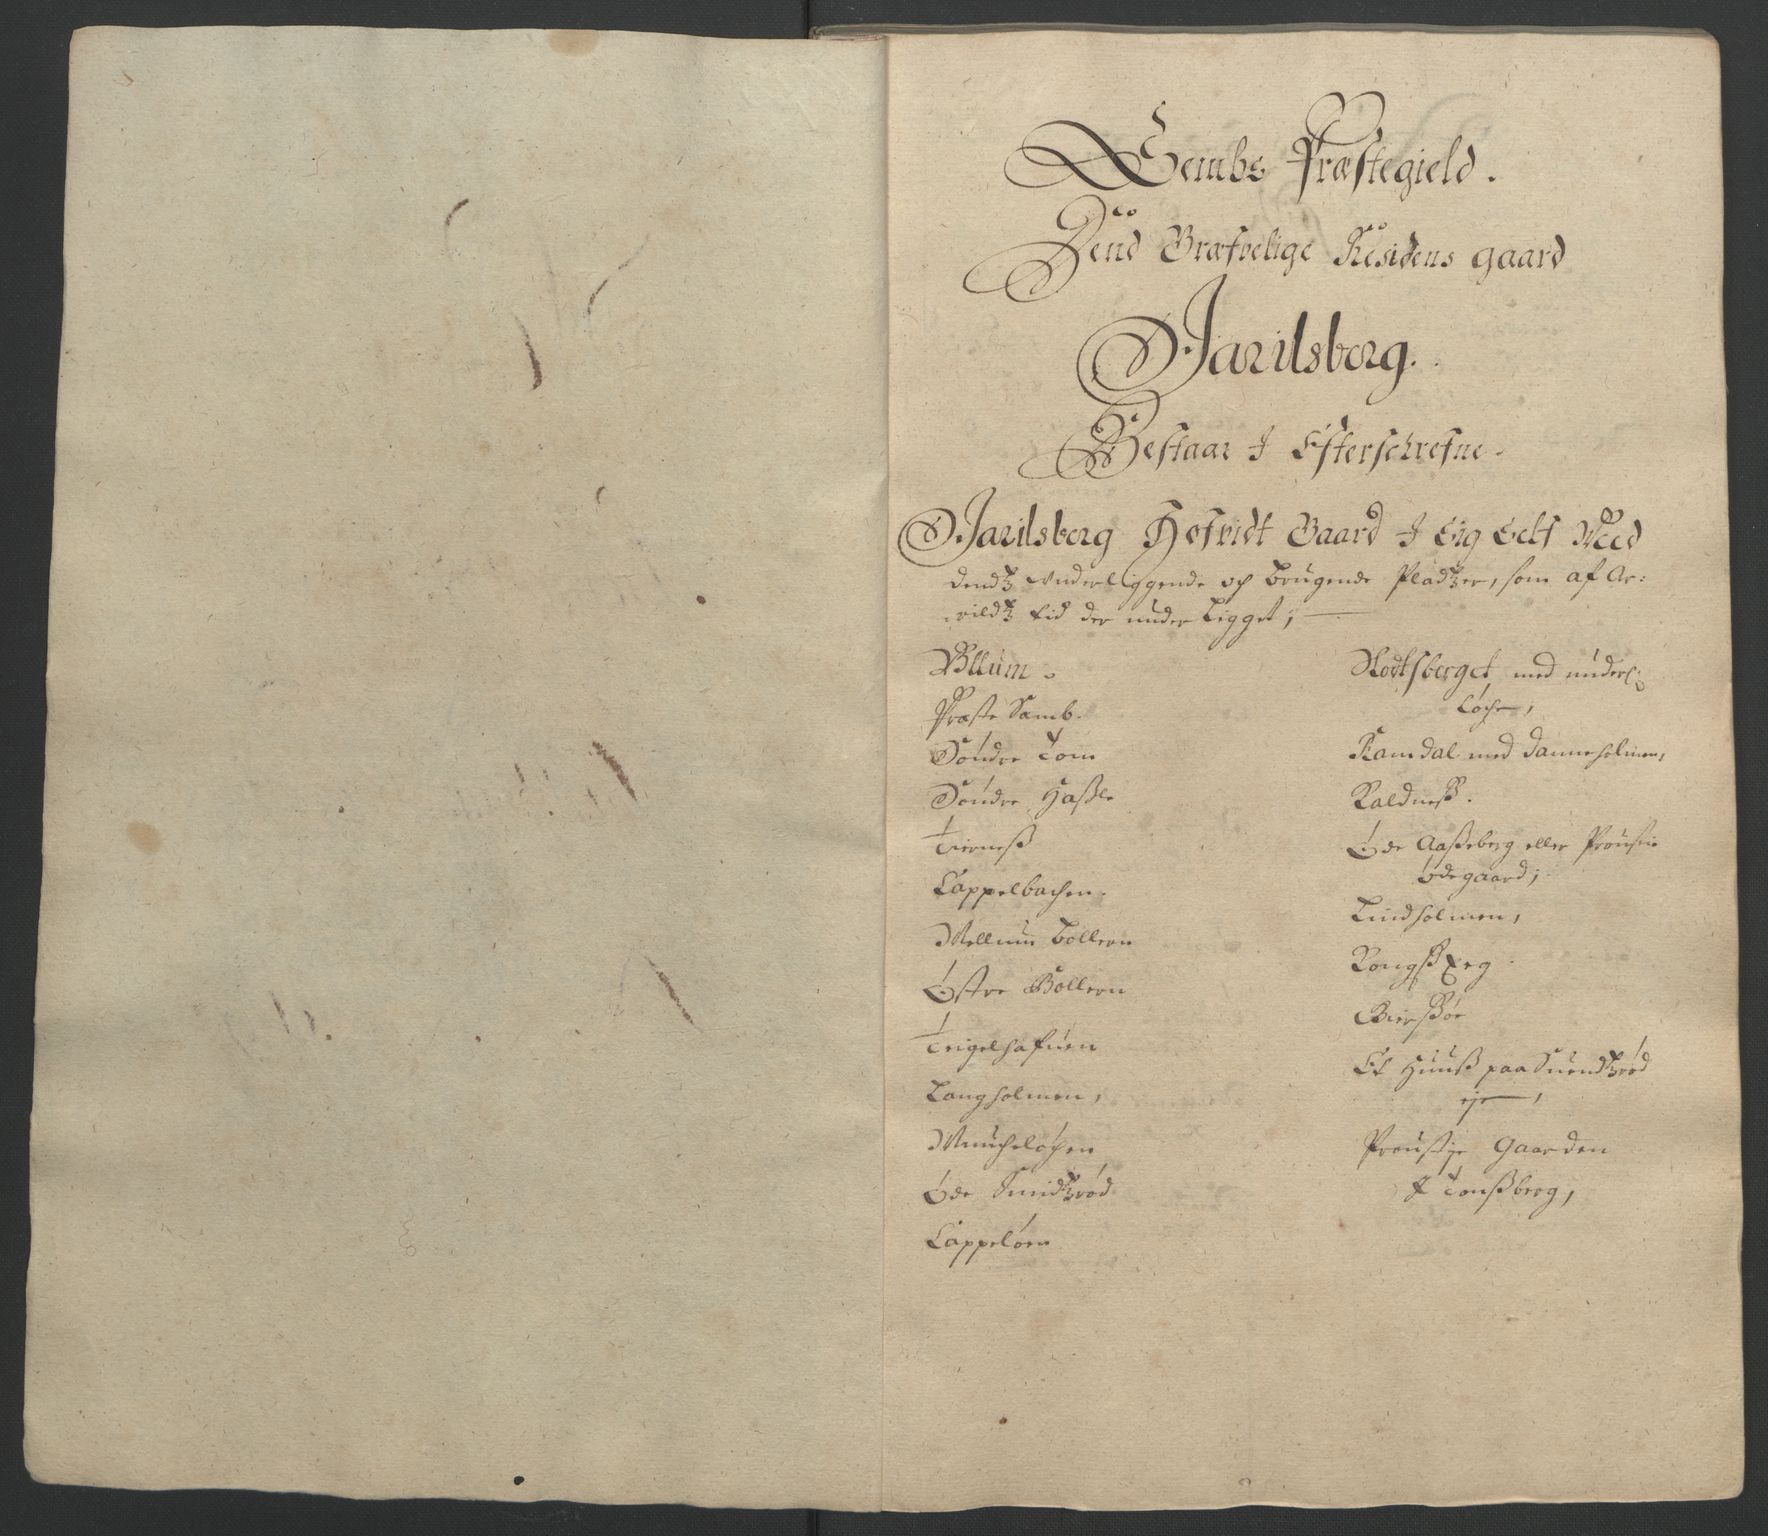 Sembs Præstegield.
Dend Græfvelige Residens gaard
Jarilsberg.
Bestaar J Efterschrefne.
Jarilsberg Hofvidt Gaard J Sig Self Med
dendtz underliggende och brugende Pladtzer, som af Ar:
vildtz tid der under Ligget;
Ullum.
Præste Samb.
Söndre Tom
Söndre Haßle
Tierneß
Cappelbachen.
Mellum Bollern
Østre Bollern
Teigelhafuen
Langholmen,
Munchelöchen
Øde Smidtzröd
Cappelöen
Rodtsberget med underl:
Löche,
Ramdal med Danneholmen,
Kaldneß.
Øde Aaßeberg eller Proustie
ödegaard;
Lindholmen,
Kongßeeg
Bierßöe
Et Huuß paa Suendtzröd
eje,
Proustje Gaarden
J Tonßberg,